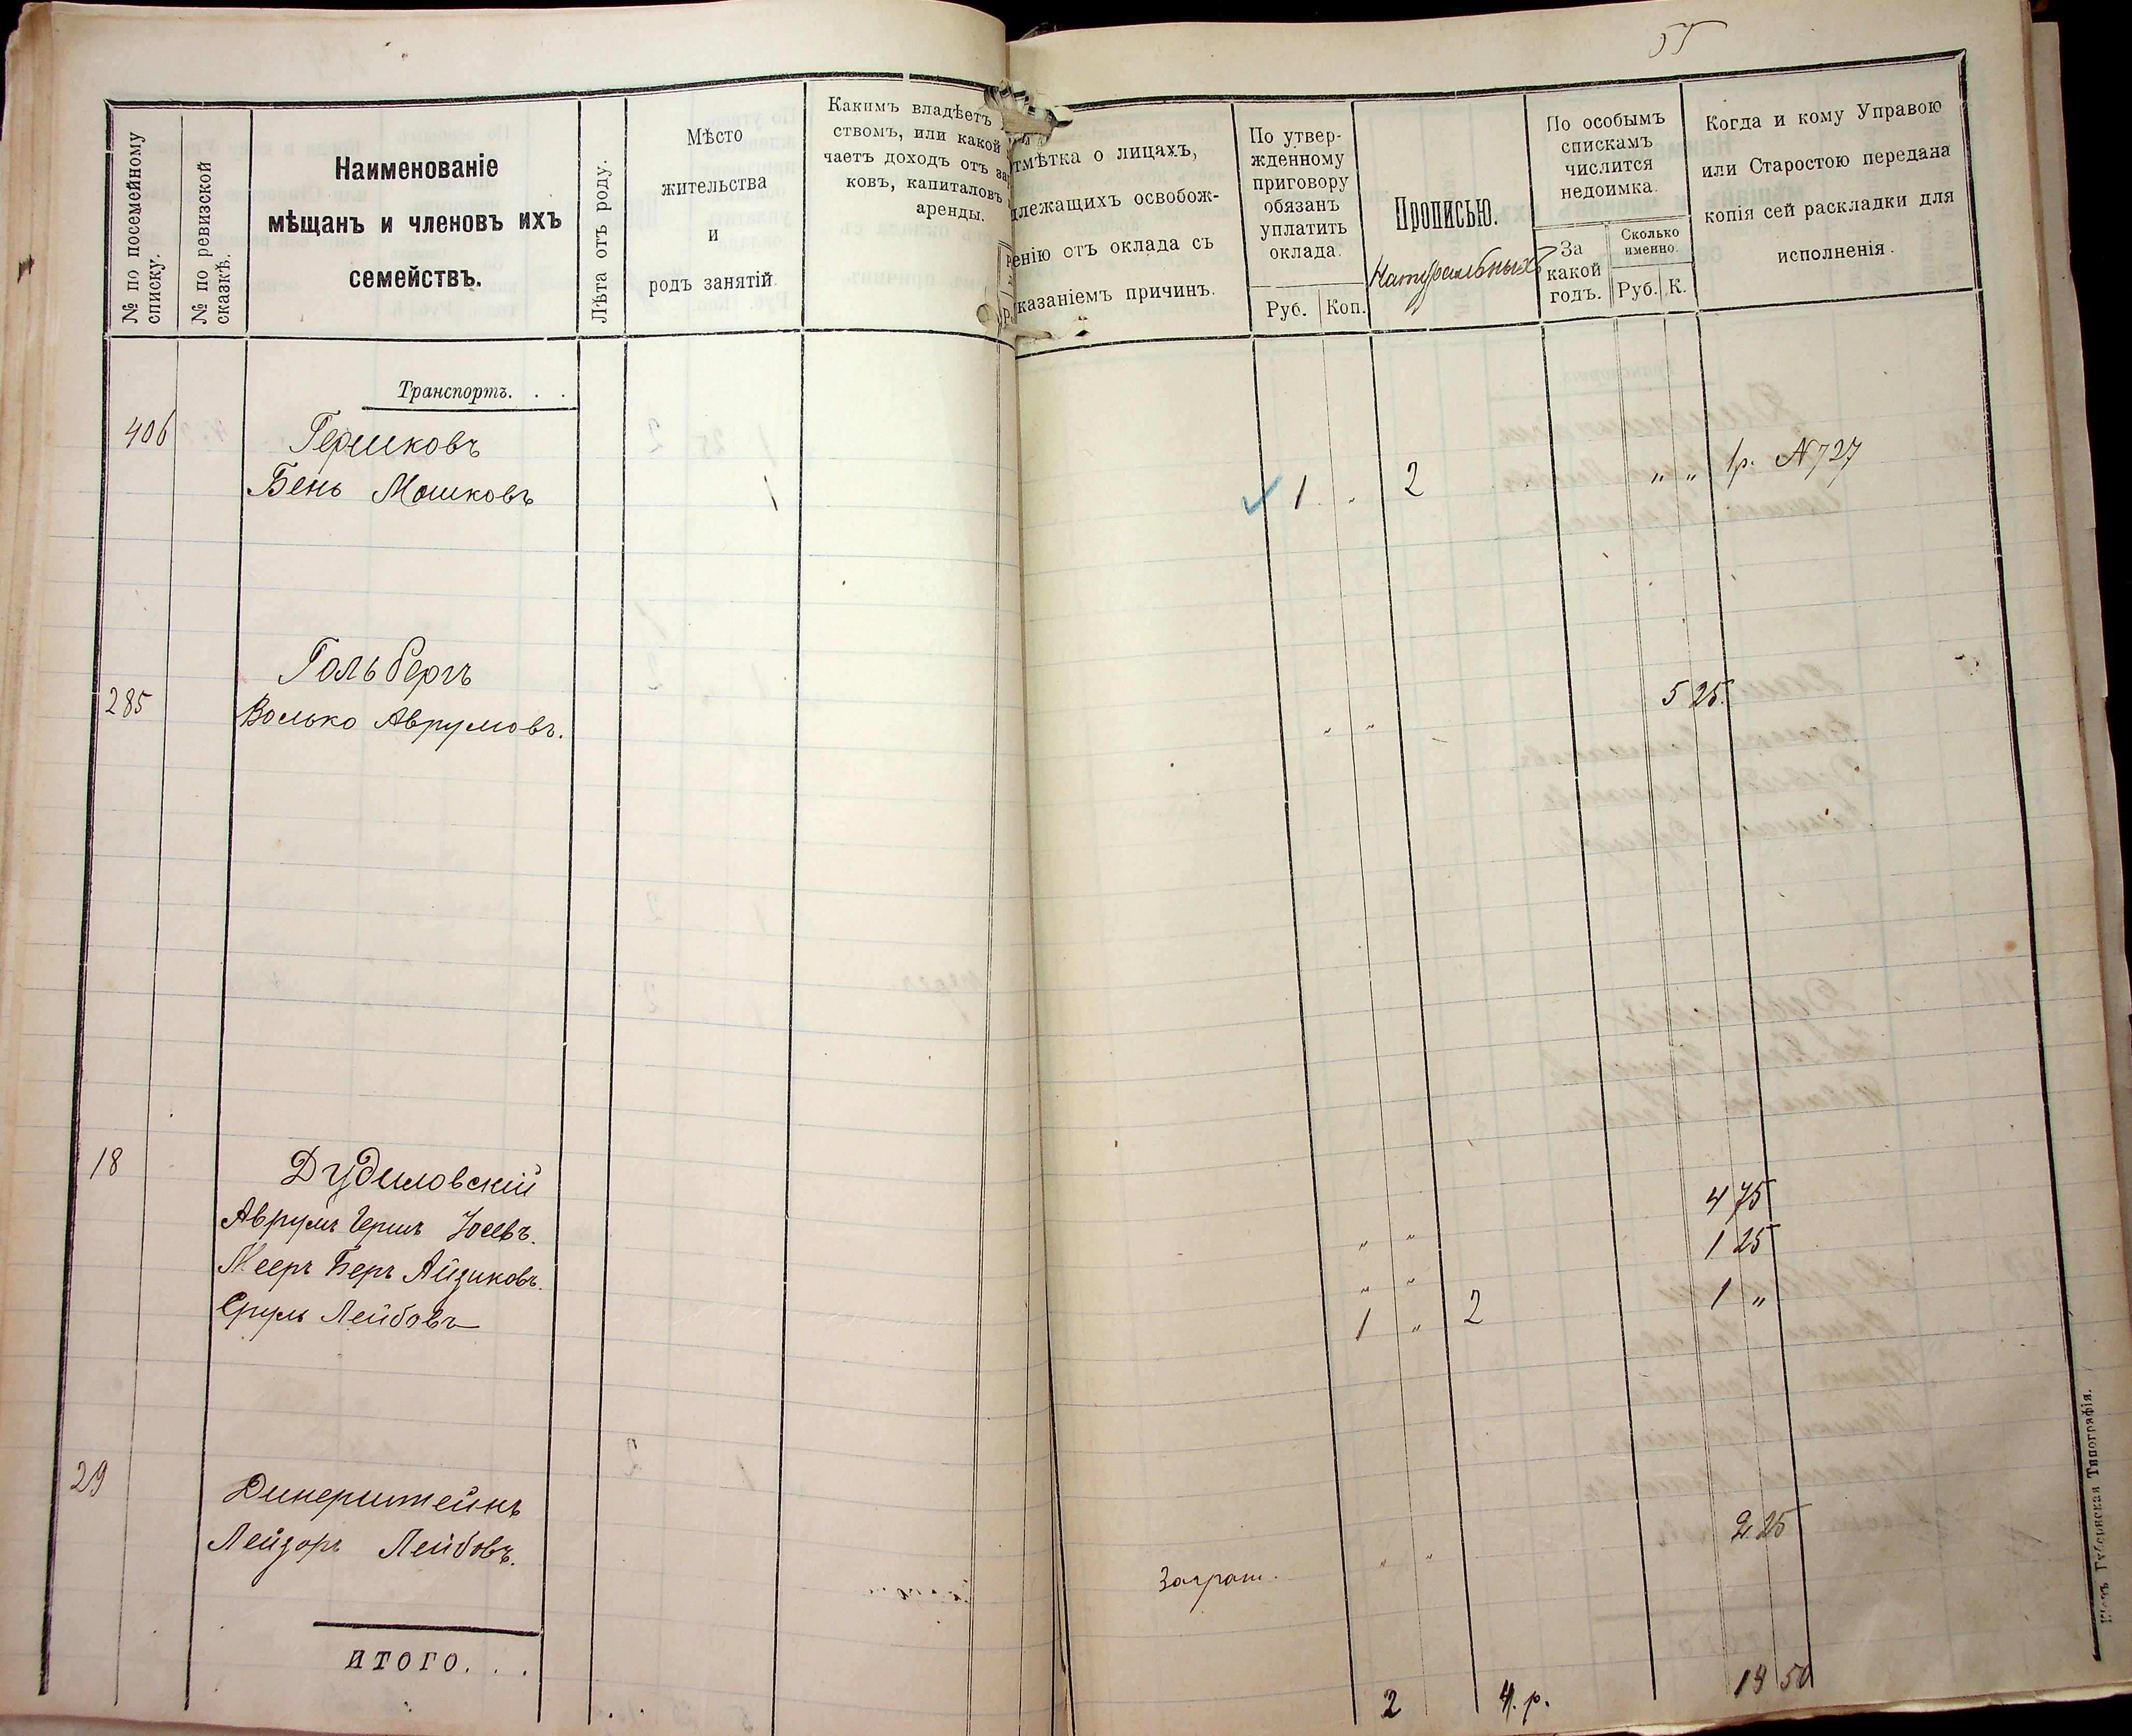 55
№ по посемейному списку.
№ по ревизской сказкѣ.
Наименованіе
мѣщанъ и членовъ ихъ
семействъ.
Лѣта отъ роду.
Мѣсто
жительства
и
родъ занятій.
Какимъ владѣетъ
ствомъ, или какой
чаетъ доходъ отъ за
ковъ, капиталовъ
аренды.
тмѣтка о лицахъ,
длежащихъ освобож-
енію отъ оклада съ
казаніемъ причинъ.
По утвер-
жденному
приговору
обязанъ
уплатить
оклада.
Руб. Коп.
Прописью.
Натуральныхъ
По особымъ
спискамъ
числится
недоимка.
За
какой
годъ.
Сколько
именно.
Руб. К.
Когда и кому Управою
или Старостою передана
копія сей раскладки для
исполненія.
Транспортъ. . .
406 Гершковъ
Бень Мошковъ 1 1 „ 2 „ „ 1р. №727
Гольбергъ 5 25.
285 Волько Аврумовъ. „ „
18 Дудиловскій 4 75
Аврумъ Гершъ Іосевъ. „ „ 1 25
Мееръ Беръ Айзиковъ. „ „ 1 „
Сруль Лейбовъ 1 „ 2
29 Динерштейнъ 2 25
Лейзоръ Лейбовъ. „ „
Заграт.
ИТОГО. . .
2 4. р. 13 50
Кіевъ Губернская Типографія.